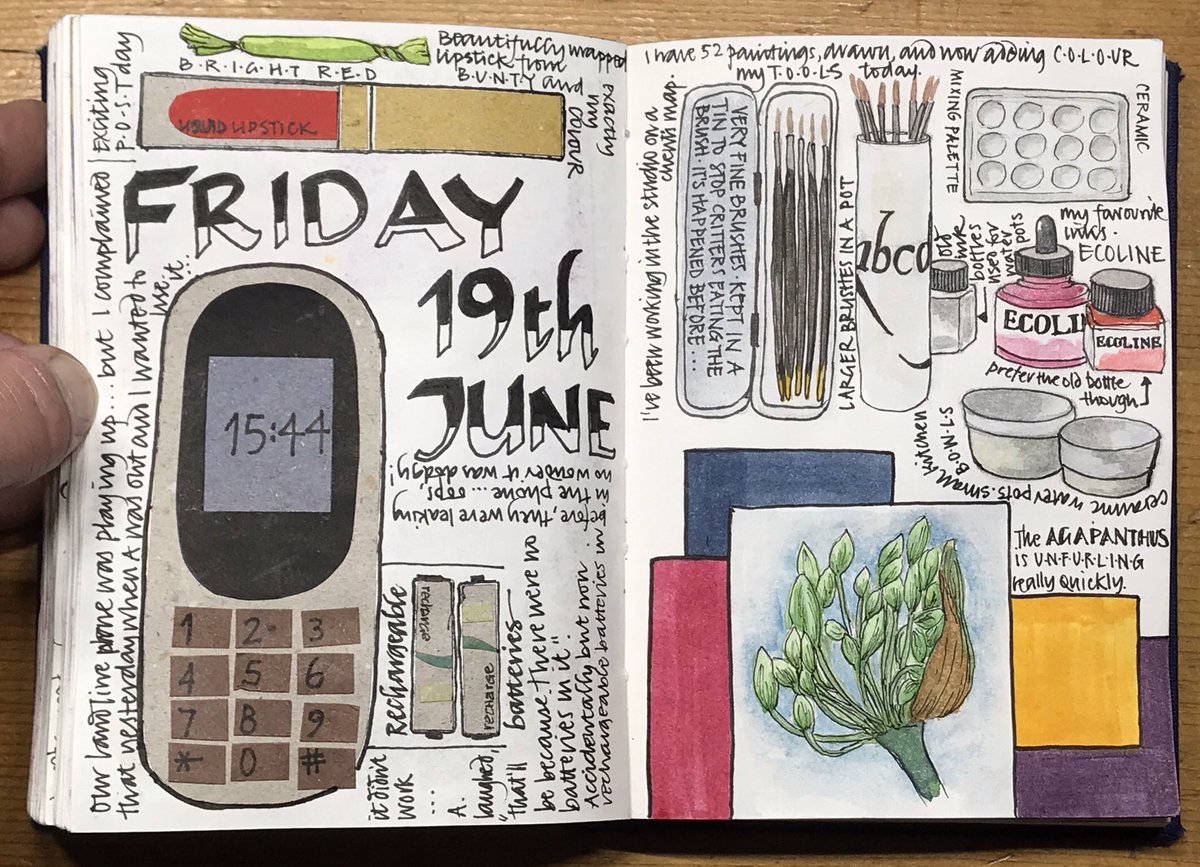 EXCITING
P·O·S·T day
B·R·I·G·H·T R·E·D
Beautifully wrapped
lipstick from
B·U·N·T·Y and
EXACTLY
my
COLOUR
LIQUID LIPSTICK
FRIDAY
19th
JUNE
our landline phone was playing up... but I complained
that yesterday when A was out and I wanted to
use it...
15:44
1 2 3
4 5 6
7 8 9
* 0 #
it didn't
work
...
A.
laughed,
"that'll
be because there were no
batteries in it".
Accidentally but now
rechargeable batteries in
before, they were leaking
in the phone... oops,
no wonder it was dodgy!
Rechargeable
batteries
recharge
recharge
I have 52 paintings, drawn, and now adding C·O·L·O·U·R
my T·O·O·L·S today.
I've been working in the studio on a
map.
VERY FINE BRUSHES. KEPT IN A
TIN TO STOP CRITTERS EATING THE
BRUSH. IT'S HAPPENED BEFORE...
LARGER BRUSHES IN A POT
abcd
MIXING PALETTE
CERAMIC
old
ink
bottles
used for
water
pots
my favourite
inks.
ECOLINE
ECOLI
ECOLINE
prefer the old bottle
though
ceramic water pots. small kitchen
B·O·W·L·S
The AGAPANTHUS
is U·N·F·U·R·L·I·N·G
really quickly.